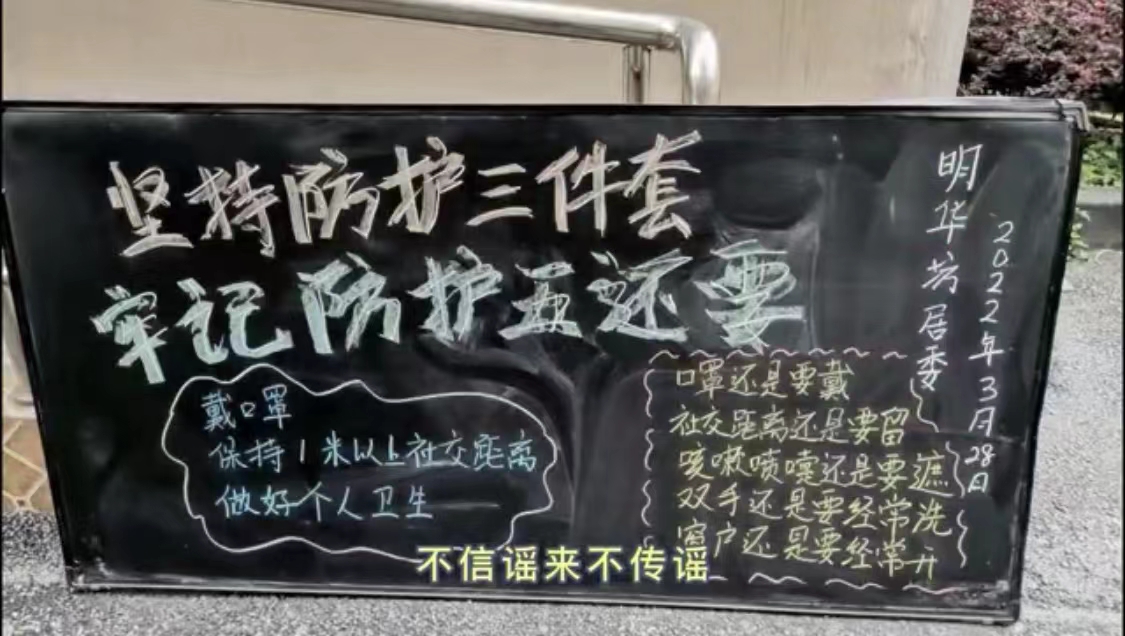 坚持防护三件套
牢记防护五还要
戴口罩
保持1米以上社交距离
做好个人卫生
口罩还是要戴
社交距离还是要留
咳嗽喷嚏还是要遮
双手还是要经常洗
窗户还是要经常开
明华芳居委
2022年3月28日
不信谣来不传谣